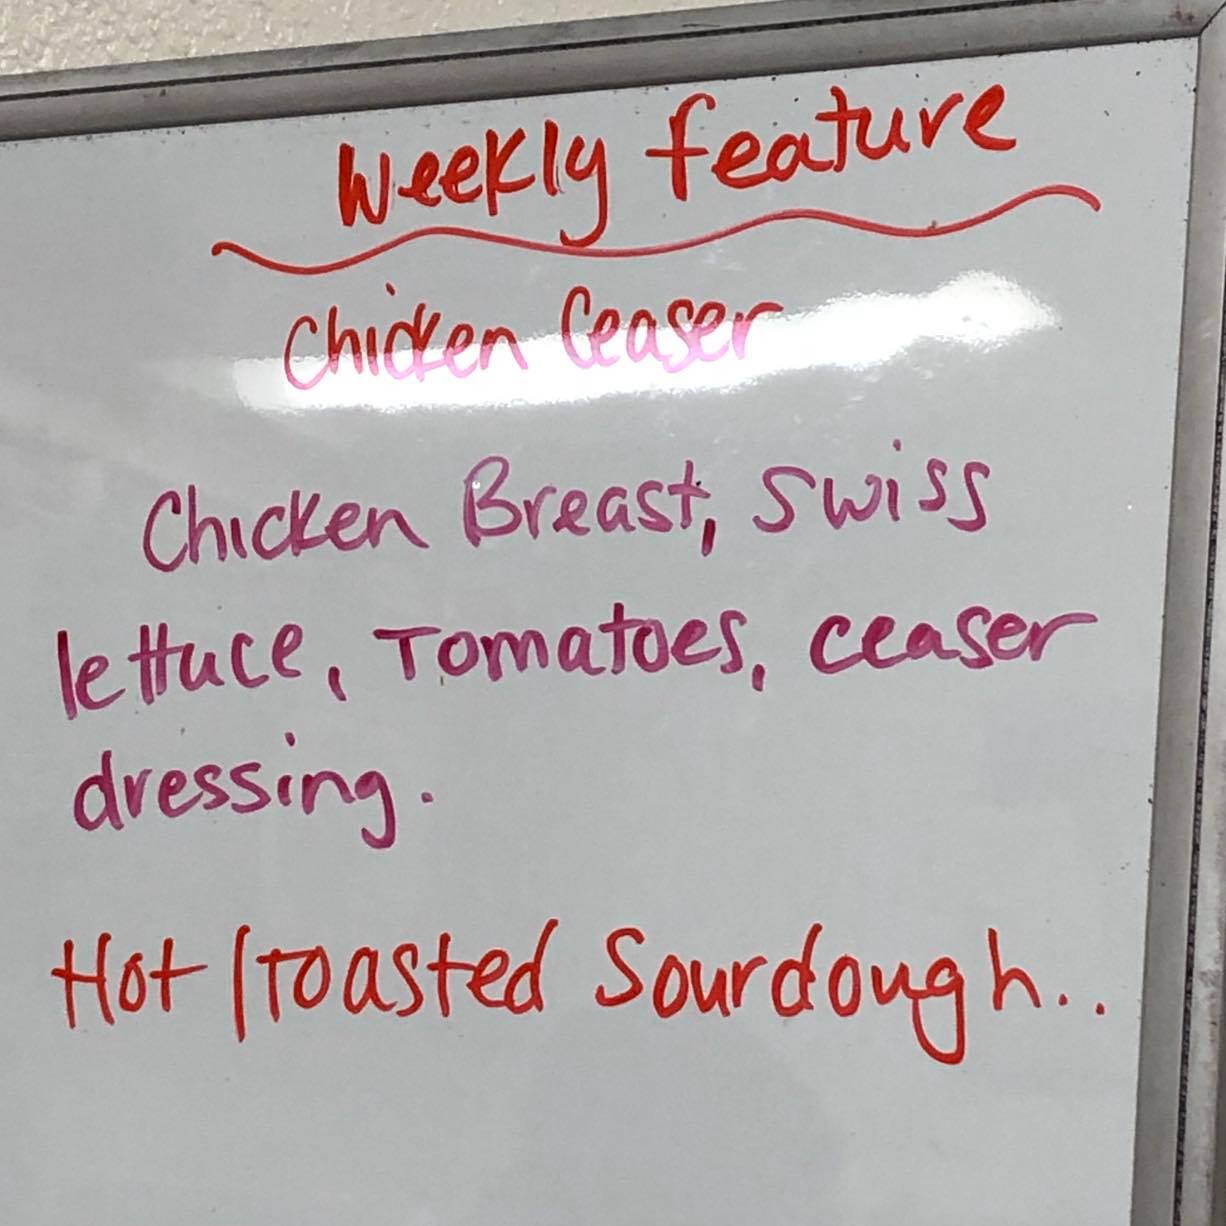 Weekly feature
Chicken Ceaser
Chicken Breast, Swiss
lettuce, Tomatoes, ceaser
dressing.
Hot/Toasted Sourdough..